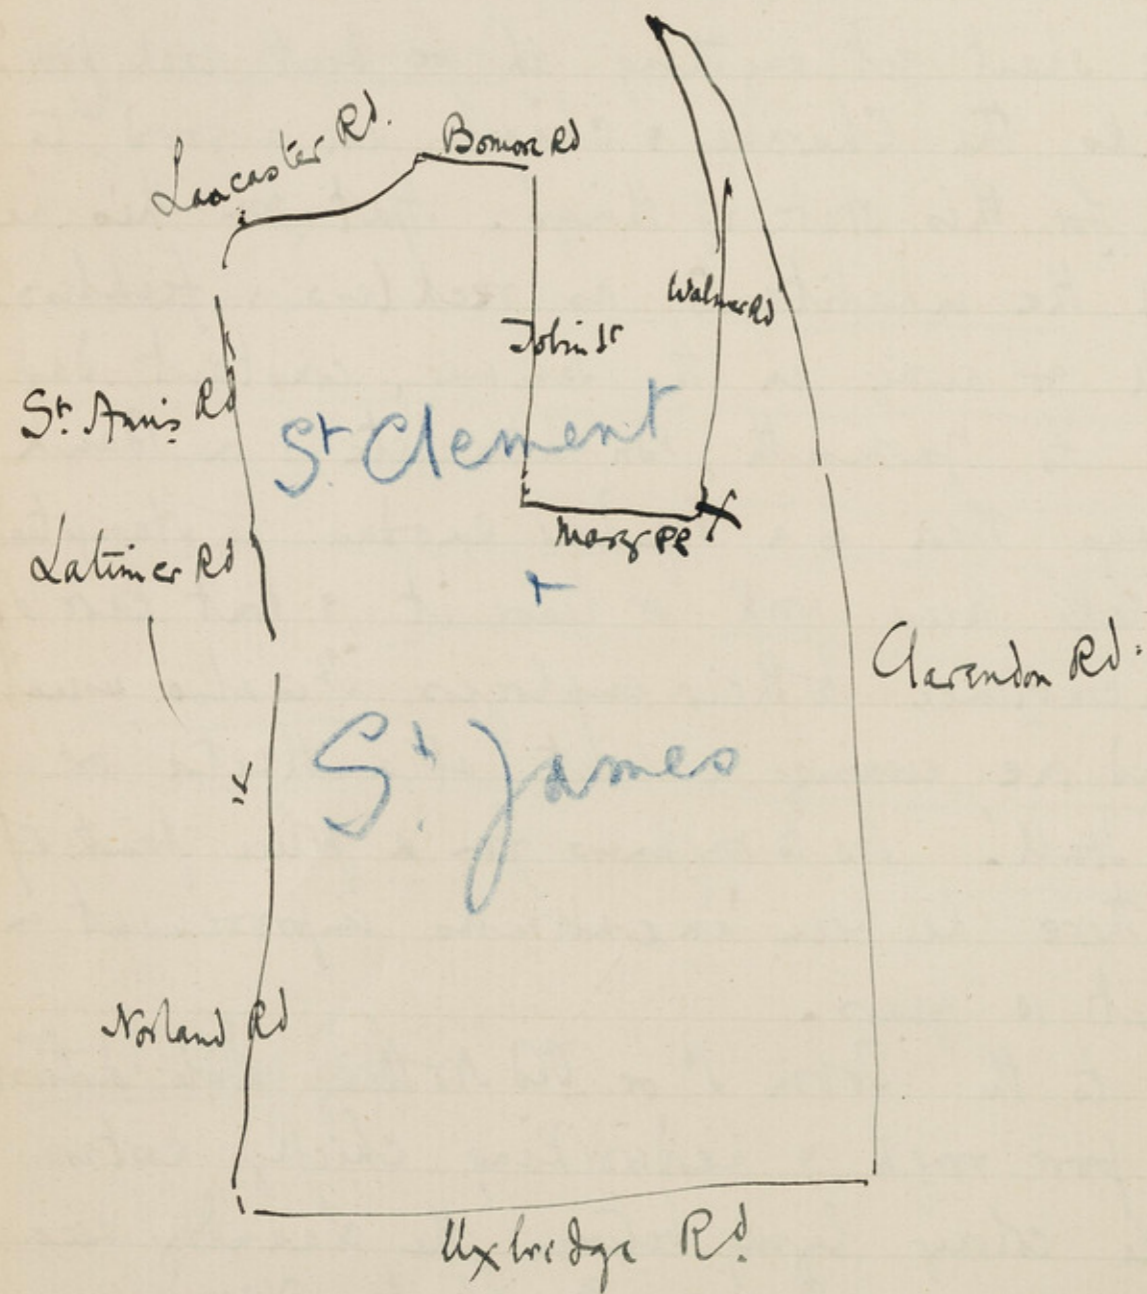 Lancaster Rd.
Bomore Rd
Walmer Rd
John St
St. Ann's Rd
St Clement
Mary Pl
Latimer Rd
+
Clarendon Rd.
St. James
Norland Rd
Uxbridge Rd.